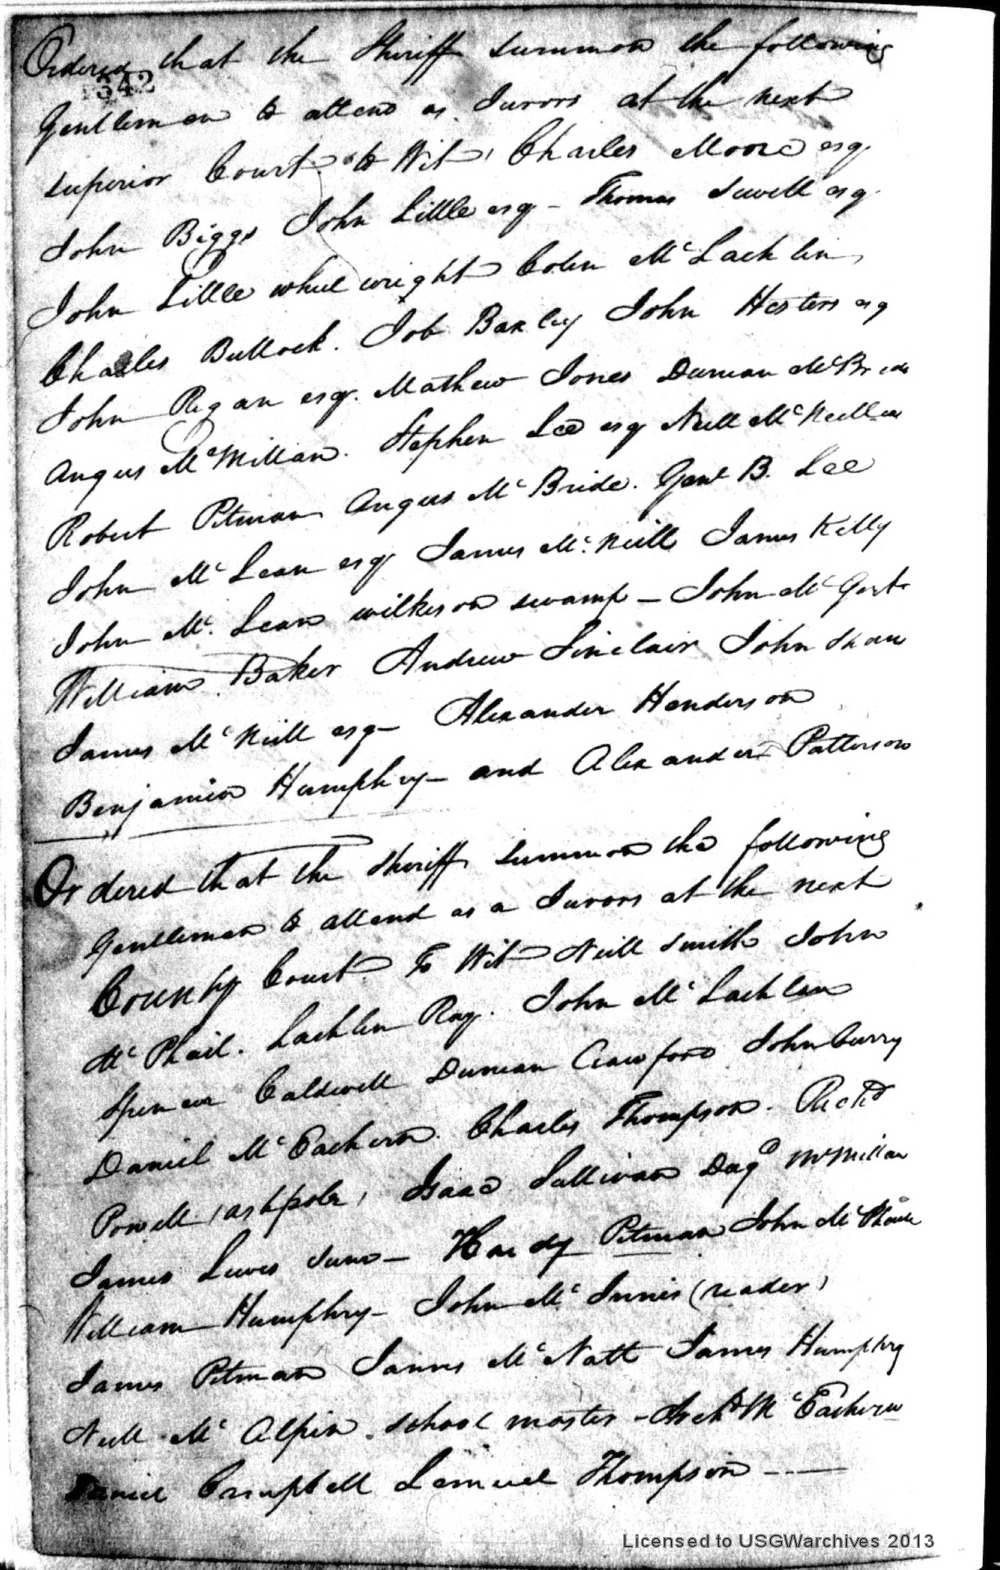 Ordered that the Sheriff summon the following
342
Gentlemen to attend as Jurors at the next
superior Court to Wit, Charles Moore esq
John Biggs John Little esq - Thomas Sewell esq
John Little wheelwright Colin McLachlin,
Charles Bullock. Job Baxley John Hesters esq
John Regan esq. Mathew Jones Duncan McBride
Angus McMillan. Stephen Lee esq Neill McNeill
Robert Pitman Angus McBride. B. Lee
John McLean esq James McNeill James Kelly
John Mc. Lean wilkerson swamp - John Mc
William Baker Andrew Sinclair John Shaw
James McNeill esq - Alexander Henderson
Benjamin Humphry - and Alexander Patterson
Ordered that the Sheriff summon the following
Gentlemen to attend as a Jurors at the next
County Court To Wit Neill Smith John
McPhail. Lachlin Ray. John McLachlan
Spencer Caldwell Duncan Crawford John Curry
Daniel McEachern. Charles Thompson. Richd
Powell (ashpole) Isaac Sullivan Dugd McMillan
James Lewis Junr - Hardy Pitman John Mc
William Humphry - John McInnis (reader)
James Pitman James McNatt James Humphry
Neill McAlpin school master - Archd McEachern
Daniel Campbell Lemuel Thompson ----
Licensed to USGWarchives 2013